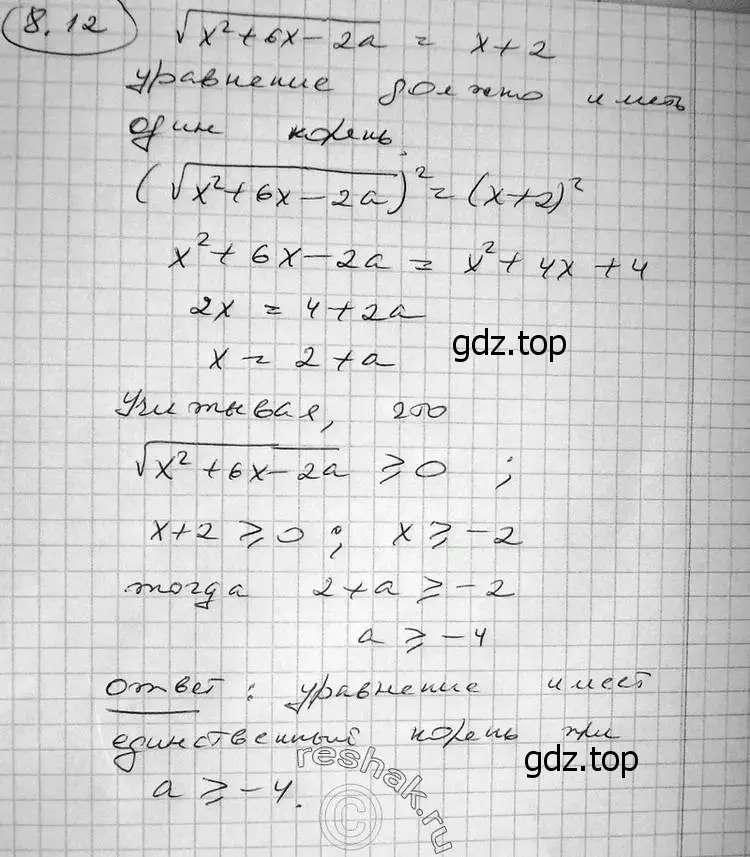 8.12 √(x²+6x-2a) = x+2
уравнение должно иметь
один корень.
(√(x²+6x-2a))² = (x+2)²
x²+6x-2a = x²+4x+4
2x = 4+2a
x = 2+a
gdz.top
Учитывая, что
√(x²+6x-2a) ⩾ 0 ;
x+2 ⩾ 0 ; x ⩾ -2
тогда 2+a ⩾ -2
a ⩾ -4
Ответ: уравнение имеет
единственный корень при
a ⩾ -4.
gdz.top
reshak.ru
©